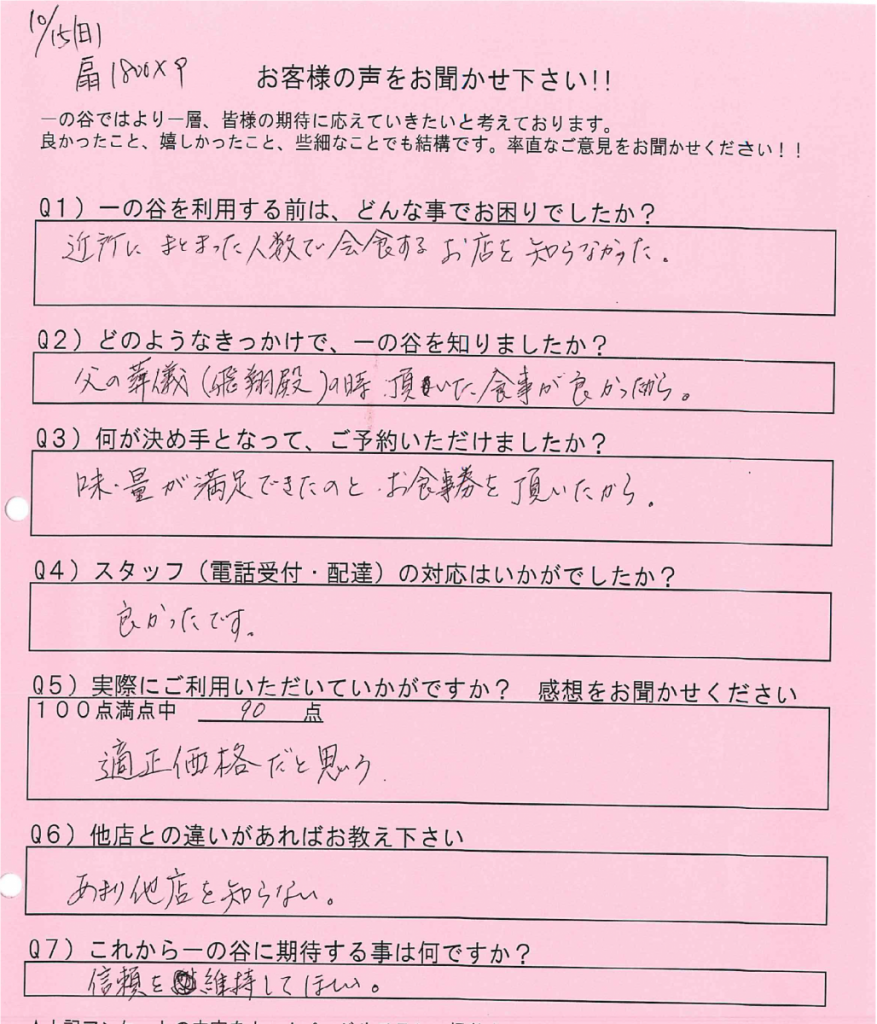 10/15(日)
扇1800×9
お客様の声をお聞かせ下さい!!
一の谷ではより一層、皆様の期待に応えていきたいと考えております。
良かったこと、嬉しかったこと、些細なことでも結構です。率直なご意見をお聞かせください！！
Q1）一の谷を利用する前は、どんな事でお困りでしたか？
近所にまとまった人数で会食するお店を知らなかった。
Q2）どのようなきっかけで、一の谷を知りましたか？
父の葬儀(飛翔殿)の時頂いた食事が良かったから。
Q3）何が決め手となって、ご予約いただけましたか？
味・量が満足できたのと、お食事券を頂いたから。
Q4）スタッフ（電話受付・配達）の対応はいかがでしたか？
良かったです。
Q5）実際にご利用いただいていかがですか？　感想をお聞かせください
１００点満点中　90　点
適正価格だと思う.
Q6）他店との違いがあればお教え下さい
あまり他店を知らない。
Q7）これから一の谷に期待する事は何ですか？
信頼を維持してほしい。